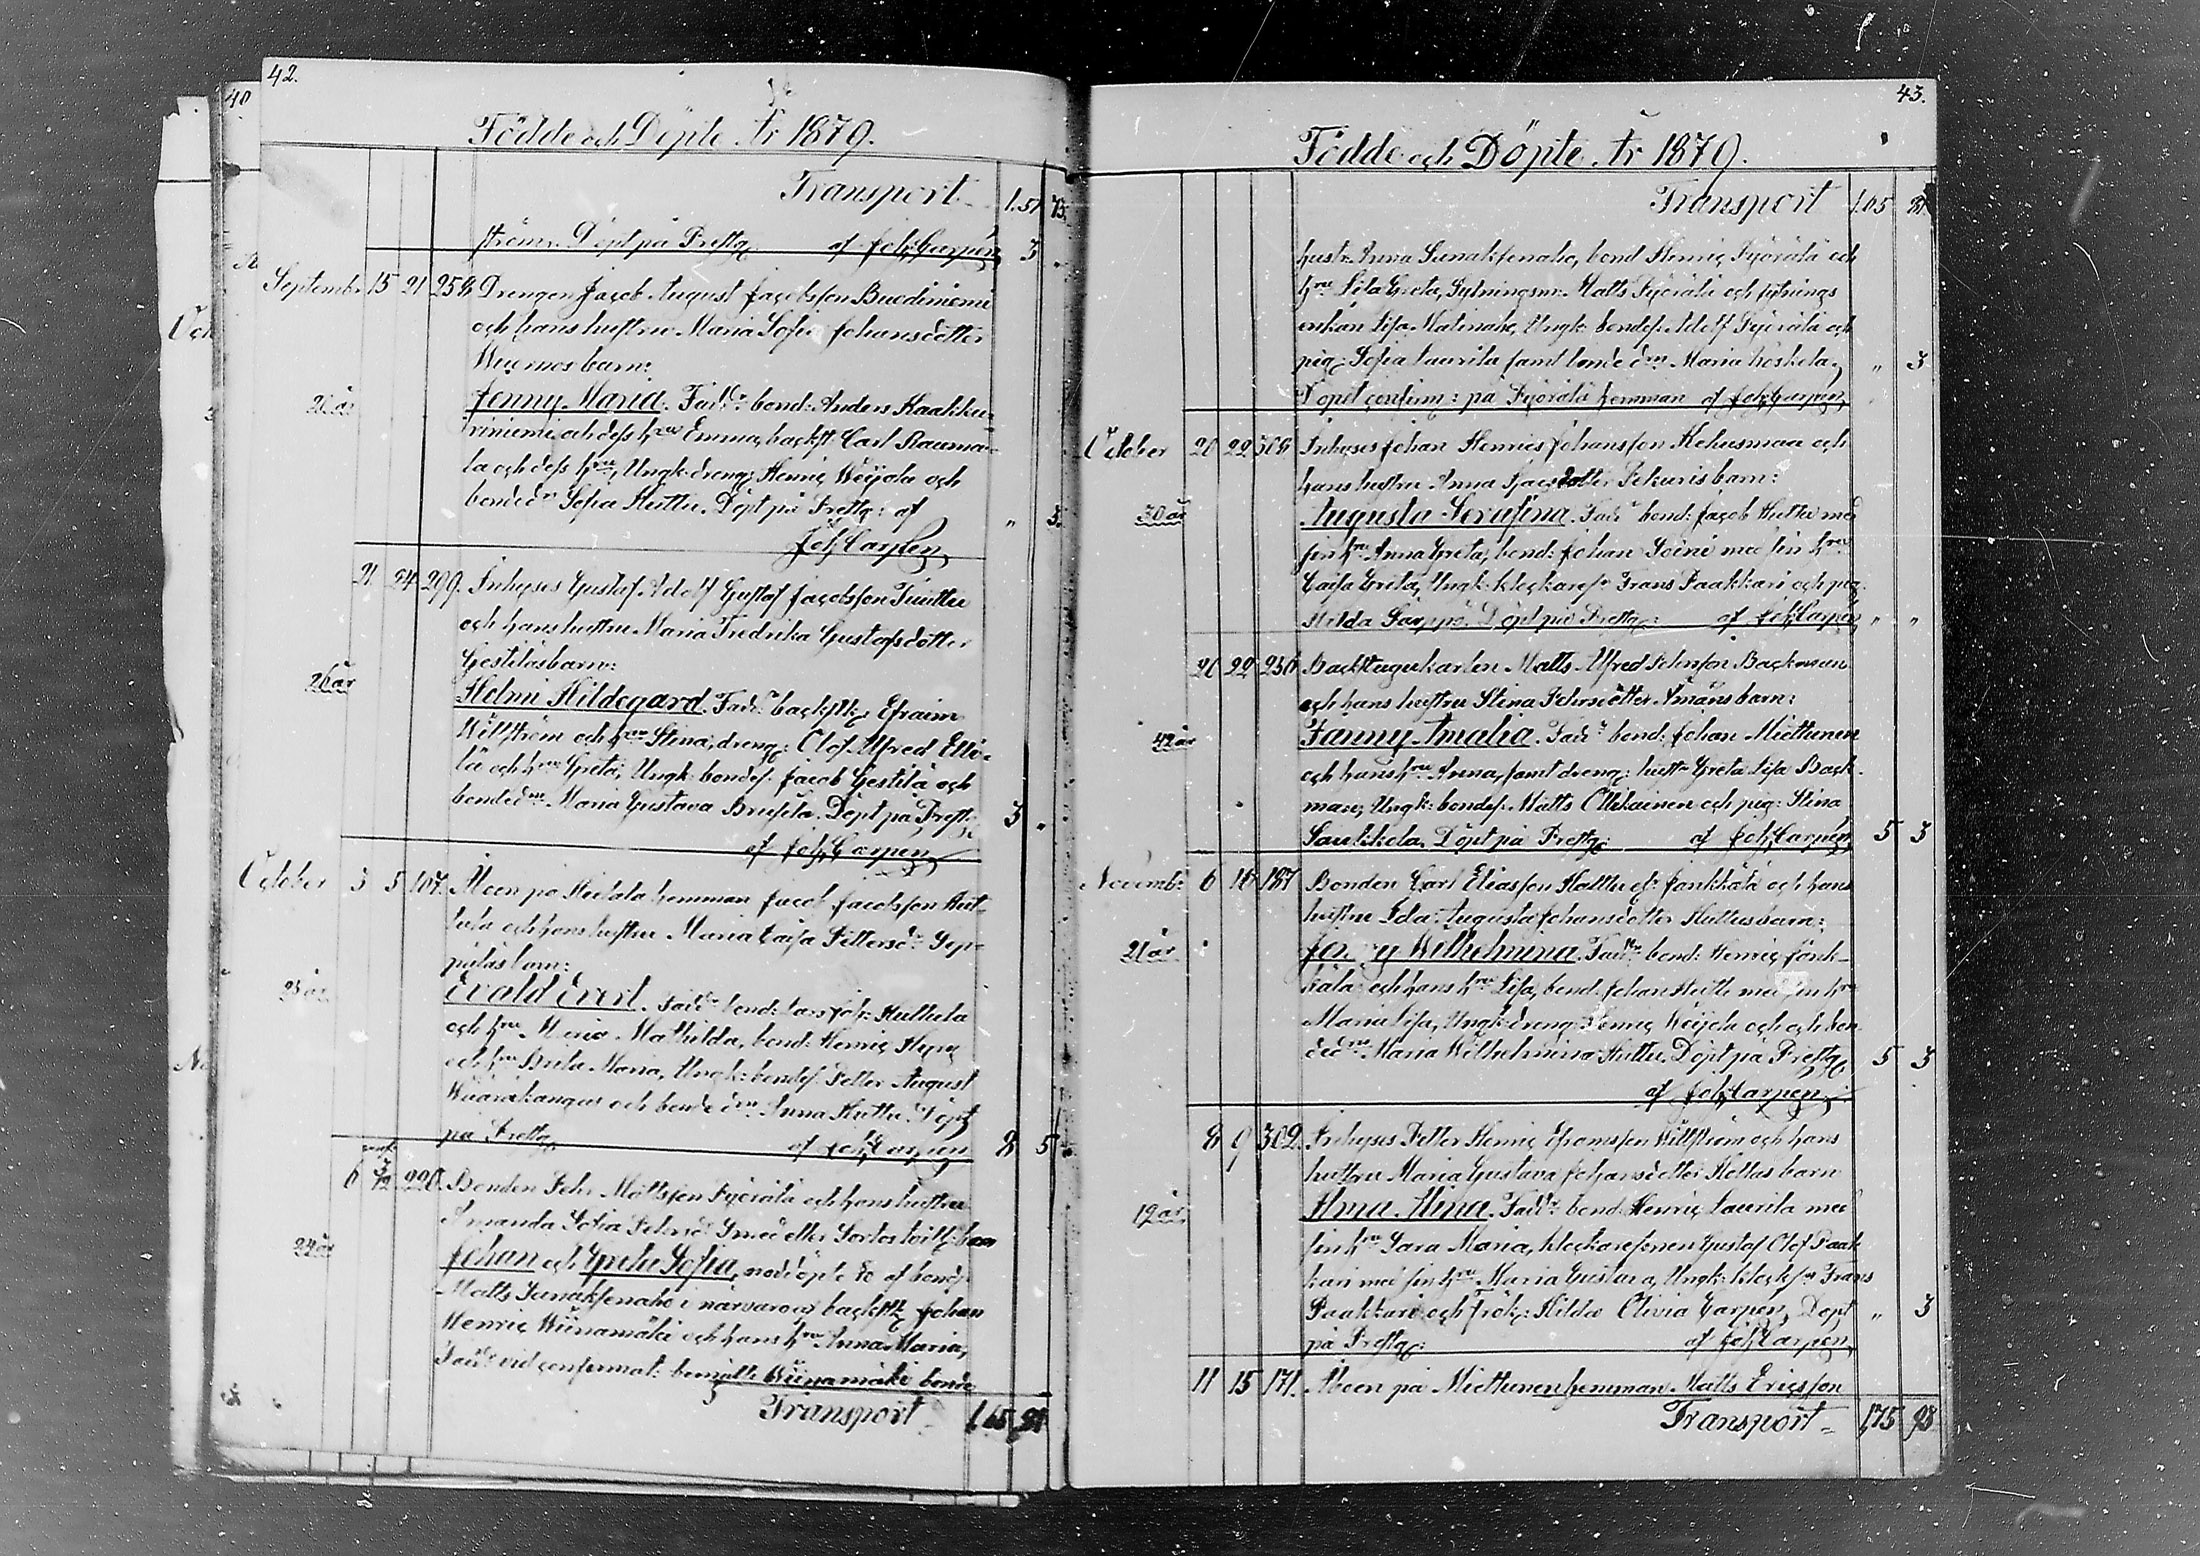 42.
40
Födde och Döpte År 1879.
Transport 1.51 73.
ström. Döpt på Prestg. af Joh. Carpén 3 "
Septembr 15 21 258 Drengen Jacob August Jacobsson
och hans hustru Maria Sofia Johansdotter
barn:
Jenny Maria. Fadd: bond: Anders Kaakku-
riniemi och dess hru Emma, backst: Carl Rauma-
la och dess hru, Ungk: dreng: Henric Weijola och
bondedn Sofia Huttu. Döpt på Prestg: af " 3.
Joh. Carpén
21 24 299. Inhyses Gustaf Adolf Gustaf Jacobsson
och hans hustru Maria Fredrika Gustafsdotter
Gestiläs barn:
26 år
Helmi Hildegard. Fadd: backstk: Efraim
Willström och hru Stina, dreng: Olof Alfred Ello-
lä och hru Greta, Ungk: bondes: Jacob Gestilä och
bondedn Maria Gustava Döpt på Prestg: 3 "
af Joh. Carpén
October 3 5 107. Åboen på hemman Jacob Jacobsson
och hans hustru Maria Caisa Pettersdr Sep-
päläs barn:
Evald Evert. Fadd: bond: Lars Joh: Huhtala
och hru Maria Mathilda, bond: Henric
och hru Brita Maria, Ungk: bondes: Petter August
och bondedn Anna Huttu. Döpt
på Prestg af Joh. Carpén 8 5
6 220. Bonden Pehr Mattsson Syörälä och hans hustru
Amanda Sofia barn
24 år
Johan och Grehe Sofia, nöddöpte af bond:
Matts Sunaksenaho i närvaro af backstk: Johan
Henric Wiinamäki och hans hru Anna Maria,
Fadd: vid confirmat: bemälte Wiinamäki bonde
Transport 1.65 81
43.
Födde och Döpte År 1879.
Transport 1.65 81
hustr: Anna Sunaksenaho, bond Henric Syörälä och
hru Lisa Greta, Sytningsm: Matts Syörälä och sytnings
enkan Lisa Matinaho, Ungk: bondes: Adolf Syörälä och
pig: Sofia Laurila samt bondedn Maria Koskela. " 3
Dopet confirm: på Syörälä hemman af Joh. Carpén
October 20 22 308 Inhyses Johan Henric Johansson Kekusmaa och
hans hustru Anna Isacsdotter Pekuris barn:
30 år
Augusta Serafina. Fadd: bond: Jacob Huttu med
sin hru Anna Greta, bond: Johan Soini med sin hru
Caisa Greta, Ungk: klockares: Frans Paakkari och pig:
Hilda Döpt på Prestg: af Joh. Carpén " "
20 22 250 Backstugukarlen Matts Alfred Backman
och hans hustru Stina Pehrsdotter Åmans barn:
42 år
Fanny Amalia. Fadd: bond: Johan Miettunen
och hans hru Anna, samt dreng: hustr: Greta Lisa Back-
man, Ungk: bondes: Matts Ollikainen och pig: Stina
Saukkola. Döpt på Prestg: af Joh. Carpén 5 3
Novemb: 6 16 187 Bonden Carl Eliasson Halttu el: Jonkkälä och hans
hustru Ida Augusta Johansdotter Huttus barn:
21 år
Jenny Wilhelmina. Fadd: bond: Henric Jonk-
kälä och hans hru Lisa, bond: Johan Huttu med sin hru
Maria Lisa, Ungk: dreng: Henric Weijola och och bon
dedn Maria Wilhelmina Huttu. Döpt på Prestg. 5 3
af Joh. Carpén
8 9 302. Inhyses Petter Henric Efraimsson Willström och hans
hustru Maria Gustava Johansdotter Holtus barn
19 år
Alma Alina. Fadd: bond: Henric Laurila med
sin hru Sara Maria, klockaresonen Gustaf Olof Paak
kari med sin hru Maria Gustava, Ungk: klocksn Frans
Paakkari och Frök: Hilda Olivia Carpén, Döpt " 3
på Prestg: af Joh. Carpén
11 15 171. Åboen på Miettunen hemman Matts Ericsson
Transport 1,75 93